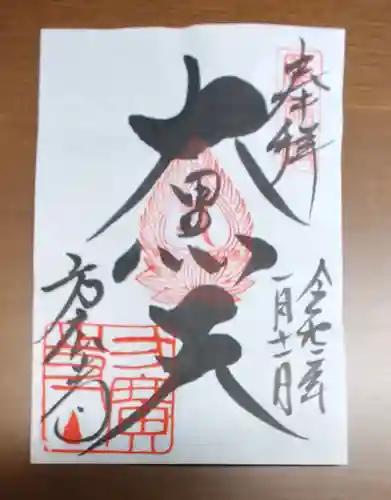 奉拝
令和二年
一月十一日
大黒天
方広寺